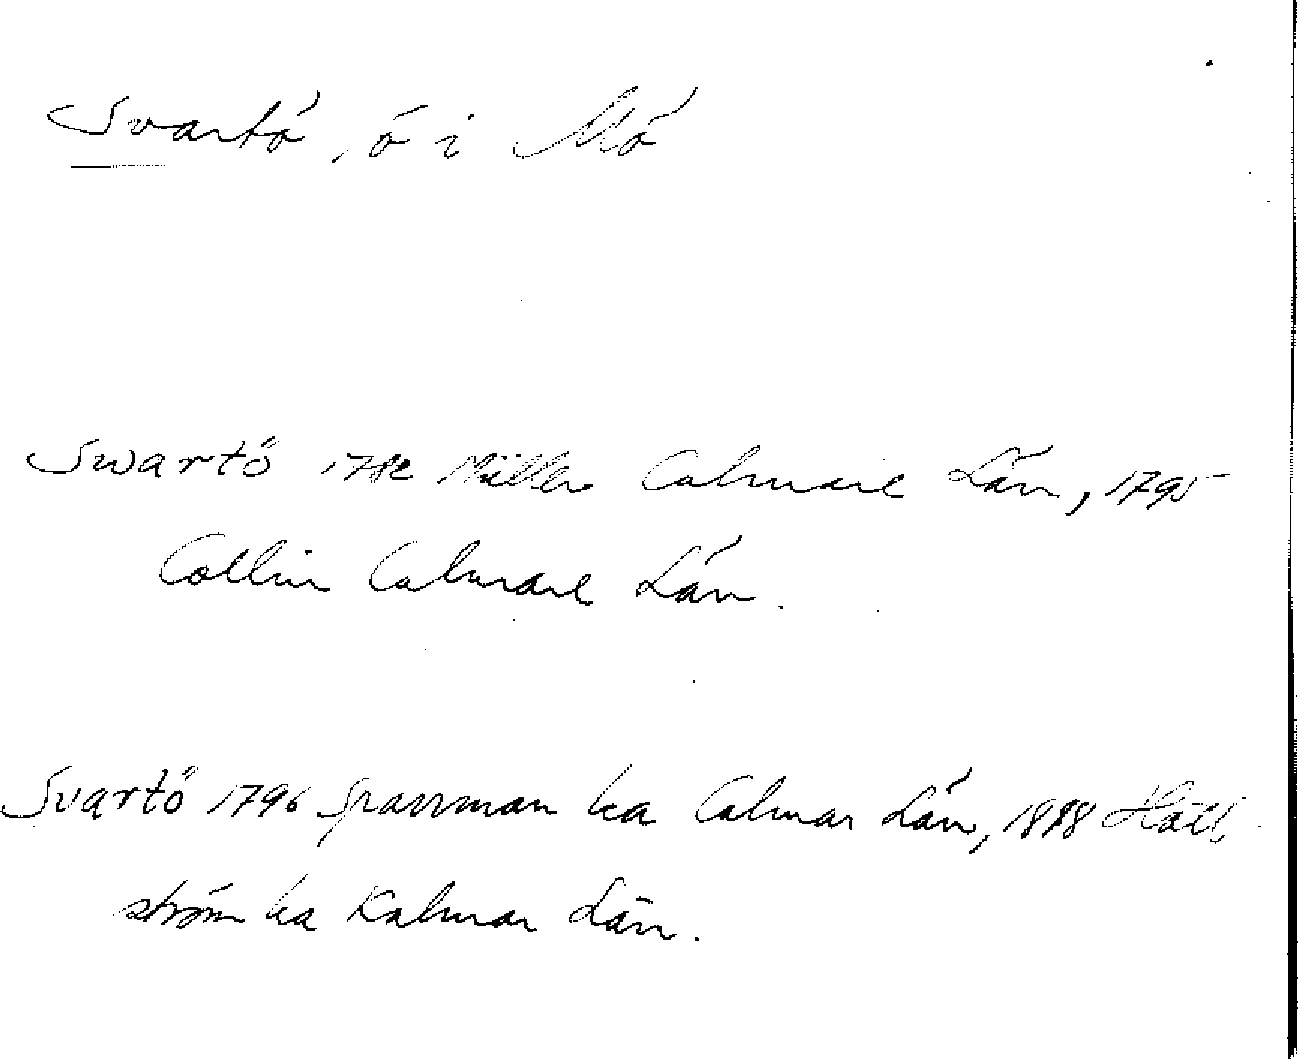 Svartö, ö i Mö
Swartö 1782 Müller Calmare Län, 1795
Collin Calmare Län.
Svartö 1796 Sparrman ka Calmar Län, 1888 Häll,
ström ka Kalmar Län.